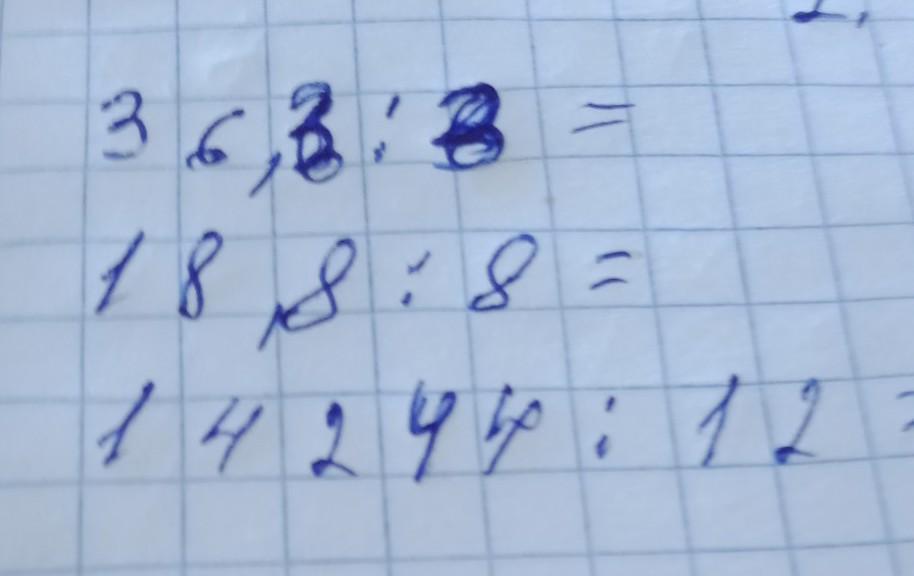 36, : =
18,8 : 8 =
14244 : 12 =